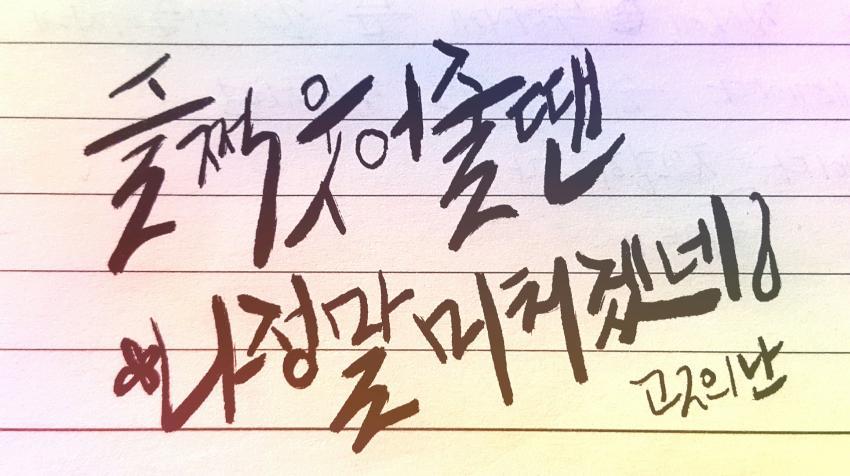 슬쩍 웃어줄땐
나 정말 미치겠네
난